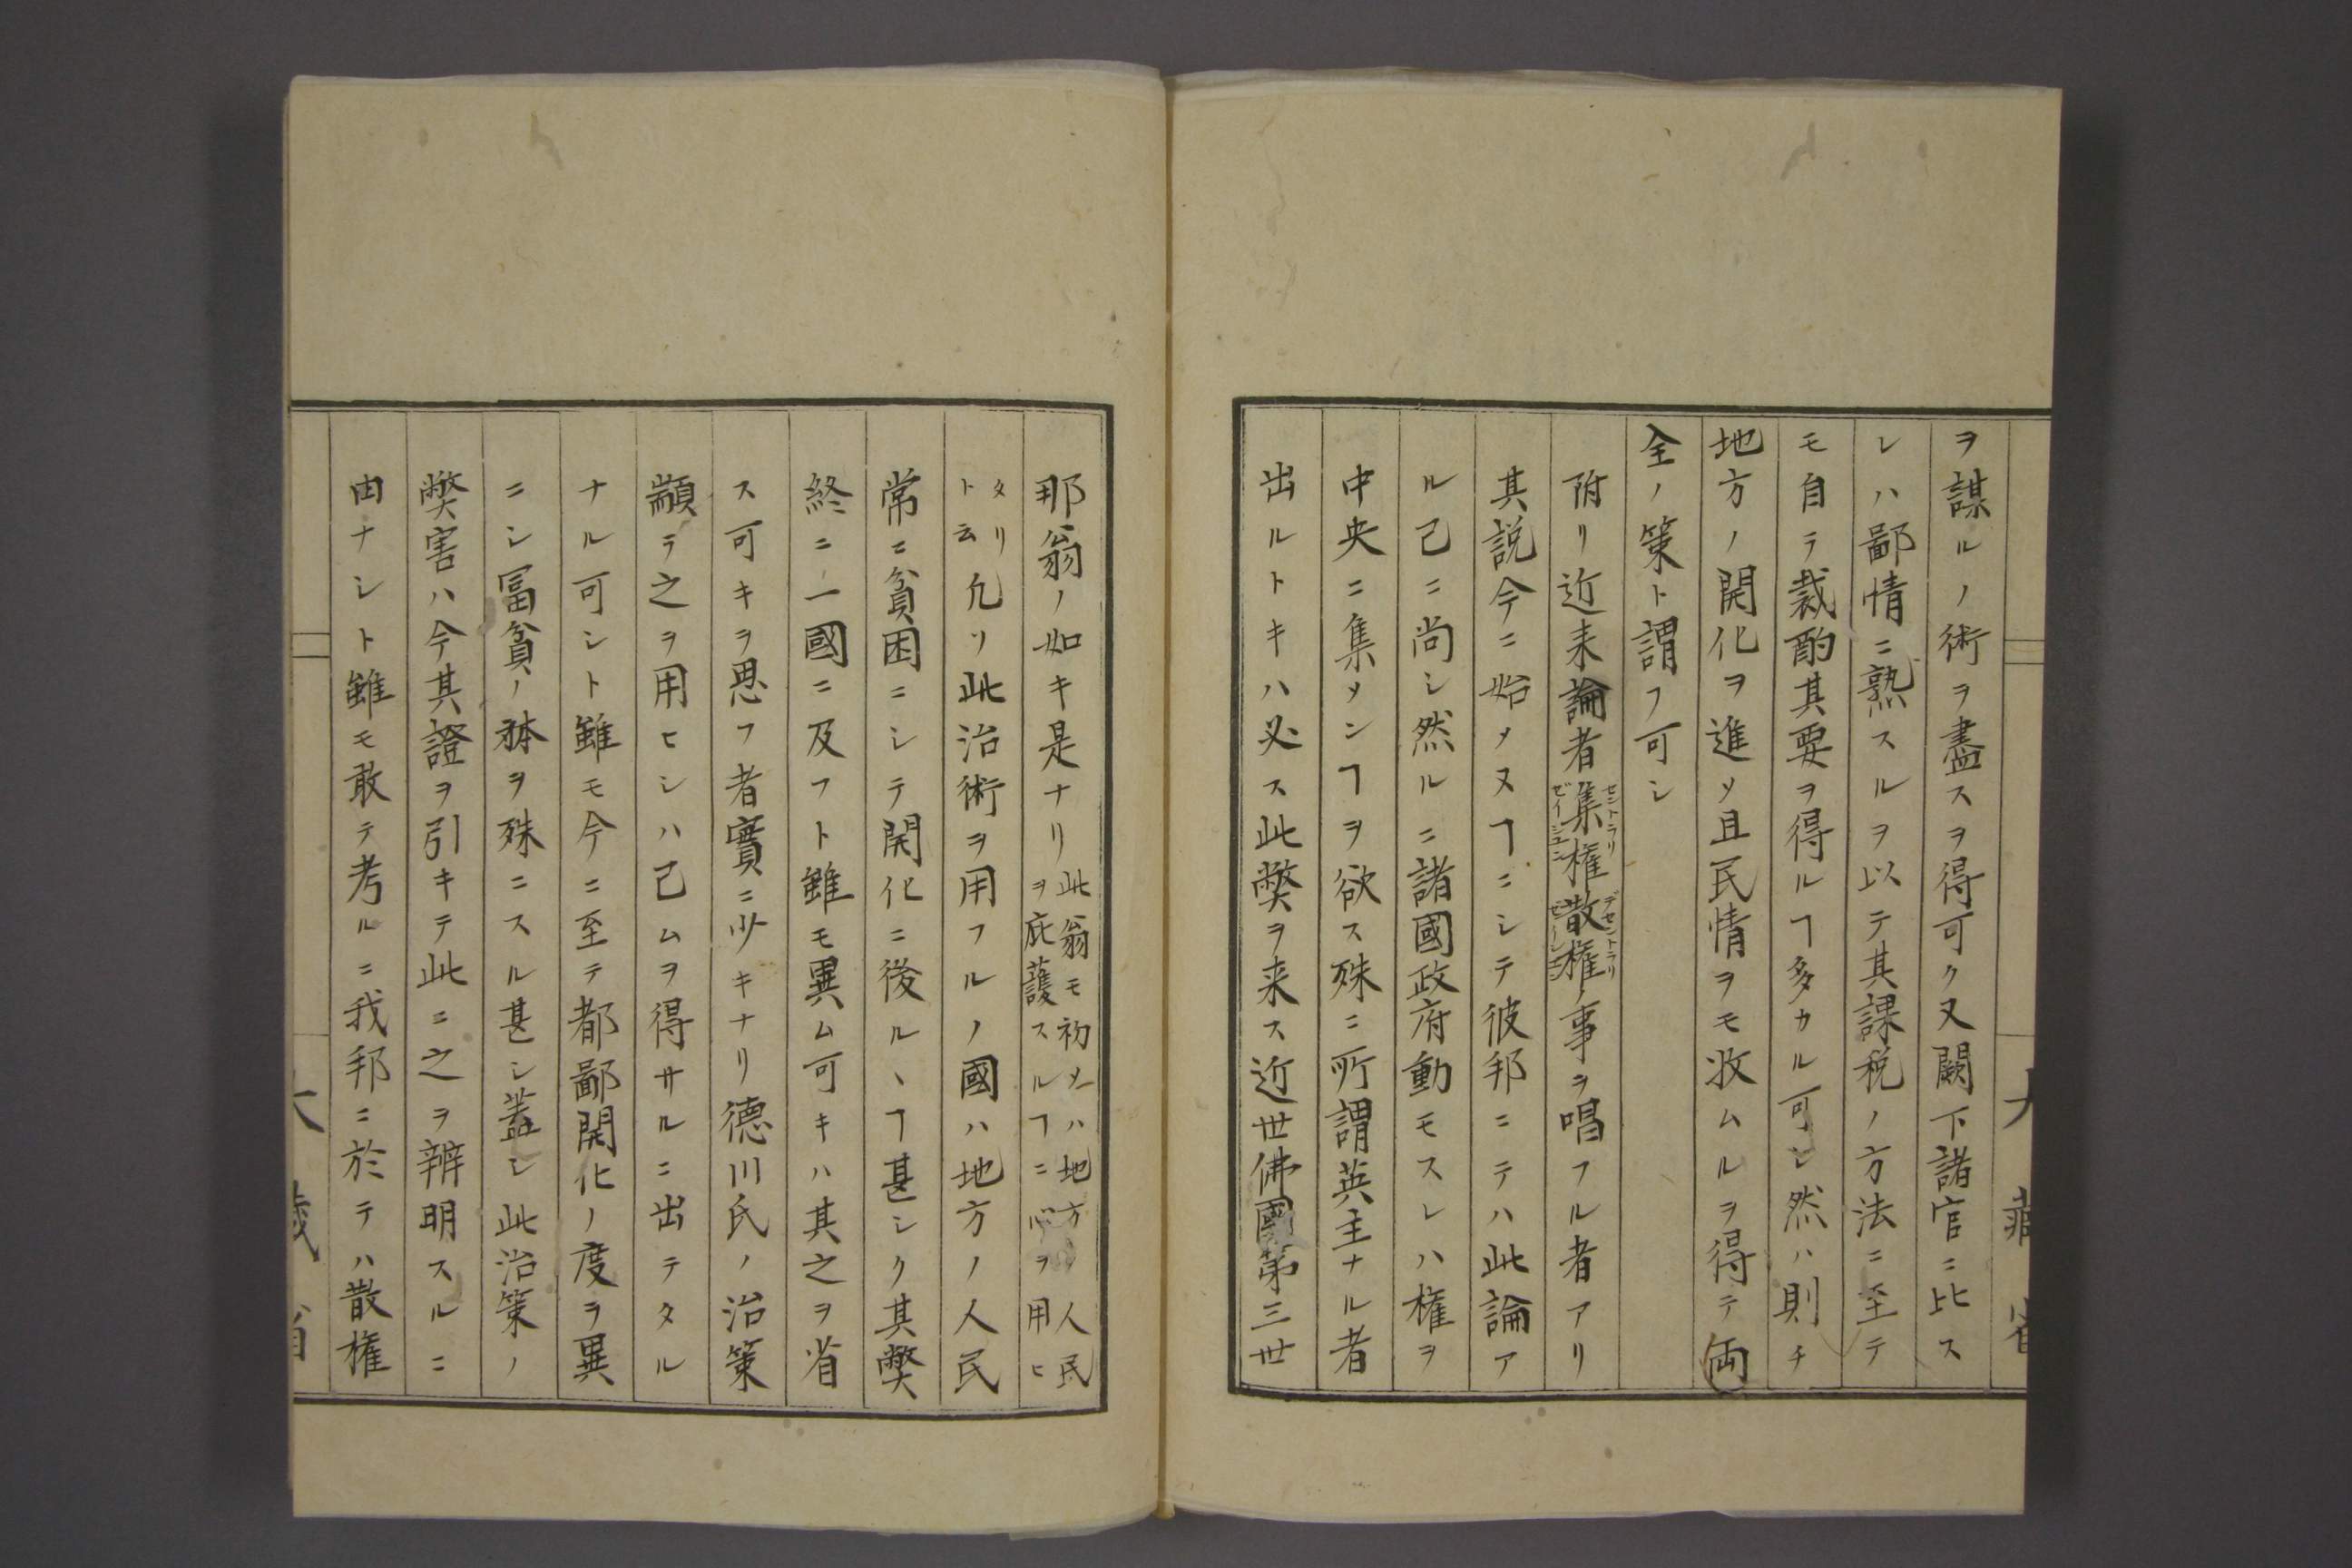 ヲ謀ルノ術ヲ盡スヲ得可ク又闕下諸官ニ比ス
レハ鄙情ニ熟スルヲ以テ其課税ノ方法ニ至テ
モ自ラ裁酌其要ヲ得ルヿ多カル可シ然ハ則チ
地方ノ開化ヲ進メ且民情ヲモ收ムルヲ得テ両
全ノ策ト謂フ可シ
附リ近来論者集権散権ノ事ヲ唱フル者アリ
セントラリゼイシュン
デセントラリゼーシュン
其説今ニ始メヌヿニシテ彼邦ニテハ此論ア
ル已ニ尚シ然ルニ諸國政府動モスレハ権ヲ
中央ニ集メンヿヲ欲ス殊ニ所謂英主ナル者
出ルトキハ必ス此弊ヲ来ス近世佛國第三世
那翁ノ如キ是ナリ此翁モ初メハ地方ノ人民ヲ庇護スルヿニ心ヲ用ヒ
タリト云凡ソ此治術ヲ用フルノ國ハ地方ノ人民
常ニ貧困ニシテ開化ニ後ルヽヿ甚シク其弊
終ニ一國ニ及フト雖モ異ム可キハ其之ヲ省
ス可キヲ思フ者實ニ少キナリ德川氏ノ治策
顓ラ之ヲ用ヒシハ已ムヲ得サルニ出テタル
ナル可シト雖モ今ニ至テ都鄙開化ノ度ヲ異
ニシ冨貧ノ體ヲ殊ニスル甚シ蓋シ此治策ノ
弊害ハ今其證ヲ引キテ此ニ之ヲ辨明スルニ
由ナシト雖モ敢テ考ルニ我邦ニ於テハ散権
大藏省